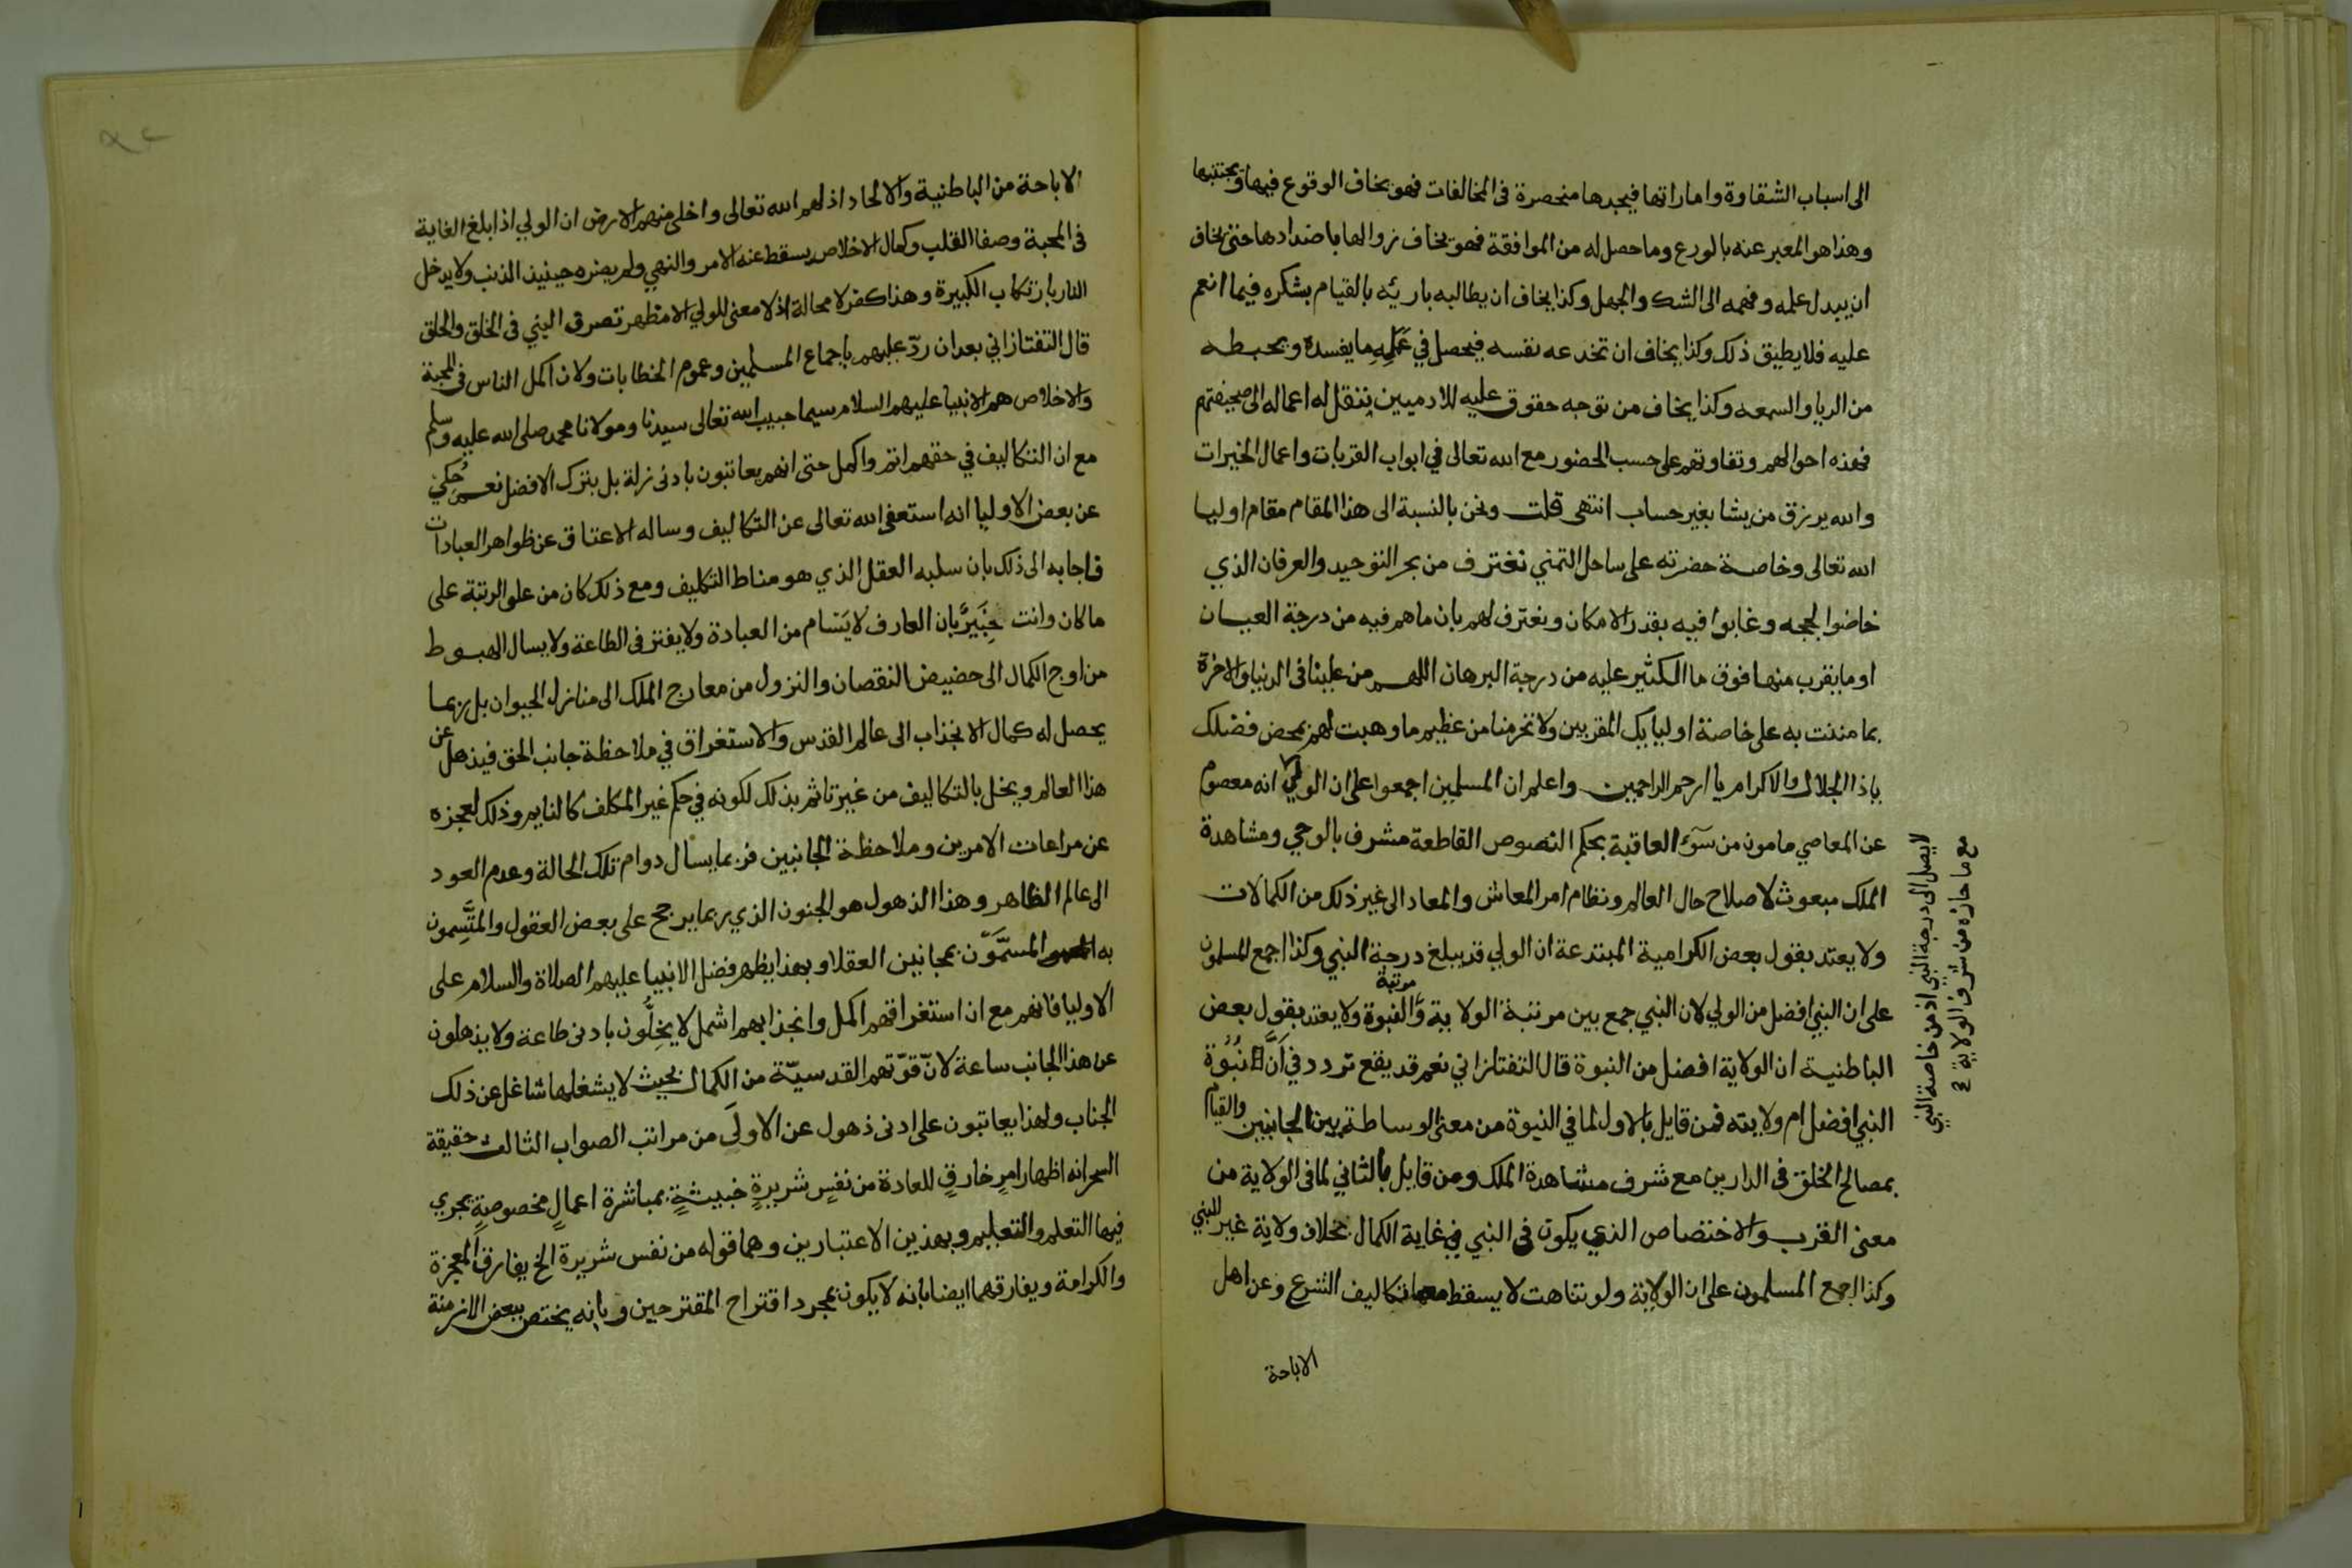 الى اسباب الشقاوة واماراتها فيجدها منحصرة فى المخالفات فهو يخاف الوقوع فيها ويجتنبها
وهذا هو المعبر عنه بالورع وما حصل له من الموافقة فهو يخاف زوالها باضدادها حتى يخاف
ان يبدل علمه وفهمه الى الشك والجهل وكذا يخاف ان يطالبه باريه بالقيام بشكره فيما انعم
عليه فلا يطيق ذلك وكذا يخاف ان تخدعه نفسه فيحصل في عَمَلِهِ ما يفسده ويحبطه
من الريا والسمعه وكذا يخاف من توجه حقوق عليه للادميين تنقل له اعماله الى صحيفتهم
فهذه احوالهم وتفاوتهم على حسب الحضور مع الله تعالى في ابواب القربات واعمال الخيرات
والله يرزق من يشا بغير حساب انتهى قلت ونحن بالنسبة الى هذا المقام مقام اوليا
الله تعالى وخاصة حضرته على ساحل التمني نغترف من بحر التوحيد والعرفان الذي
خاضوا لججه وغابوا فيه بقدر الامكان ونعترف لهم بان ما هم فيه من درجة العيان
او ما يقرب منها فوق ما الكثير عليه من درجة البرهان اللهم من علينا فى الدنيا والاخرة
بما مننت به على خاصة اوليايك المقربين ولا تحرمنا من عظيم ما وهبت لهم بمحض فضلك
ياذا الجلال والاكرام يا ارحم الراحمين واعلم ان المسلمين اجمعوا على ان الولي انه معصوم
لا يصل الى درجة النبي اذ من خاصة النبي
مع ما حازه من شرف الولاية
عن المعاصي مامون من سوء العاقبة بحكم النصوص القاطعة مشرف بالوحي ومشاهدة
الملك مبعوث لاصلاح حال العالم ونظام امر المعاش والمعاد الى غير ذلك من الكمالات
ولا يعتد بقول بعض الكرامية المبتدعة ان الولي قد يبلغ درجة النبي وكذا اجمع المسلمون
على ان النبي افضل من الولي لان النبي جمع بين مرتبة الولاية ومرتبة النبوة ولا يعتد بقول بعض
الباطنية ان الولاية افضل من النبوة قال التفتازاني نعم قد يقع تردد في اَنَّ نُبُوة
النبي افضل ام ولايته فمن قايل بالاول لما في النبوة من معنى الوساطة بين الجانبين والقيام
بمصالح الخلق فى الدارين مع شرف مشاهدة الملك ومن قايل بالثاني لما فى الولاية من
معنى القرب والاختصاص الذي يكون فى النبي في غاية الكمال بخلاف ولاية غير النبي
وكذا اجمع المسلمون على ان الولاية ولو تناهت لا يسقط معها تكاليف الشرع وعن اهل
الاباحة
الاباحة من الباطنية والالحاد اذلهم الله تعالى واخلى منهم الارض ان الولي اذا بلغ الغاية
فى المحبة وصفا القلب وكمال الاخلاص يسقط عنه الامر والنهي ولم يضره حينيذ الذنب ولا يدخل
النار بارتكاب الكبيرة وهذا كفر لا محالة اذ لا معنى للولي الا مظهر تصرف النبي فى الخلق والحلق
قال التفتازاني بعد ان ردّ عليهم باجماع المسلمين وعموم الخطابات ولان اكمل الناس فى المحبة
والاخلاص هم الانبيا عليهم السلام سيما حبيب الله تعالى سيدنا ومولانا محمد صلى الله عليه وسلم
مع ان التكاليف في حقهم اتم واكمل حتى انهم يعاتبون بادنى زلة بل بترك الافضل نعم حُكِيَ
عن بعض الاوليا انه استعفى الله تعالى عن التكاليف وساله الاعتاق عن ظواهر العبادات
فاجابه الى ذلك بان سلبه العقل الذي هو مناط التكليف ومع ذلك كان من علو الرتبة على
ما كان وانت خَبِيرٌ بان العارف لا يَسَام من العبادة ولا يفتر فى الطاعة ولا يسال الهبوط
من اوج الكمال الى حضيض النقصان والنزول من معارج الملك الى منازل الحيوان بل ربما
يحصل له كمال الانجذاب الى عالم القدس والاستغراق في ملاحظة جانب الحق فيذهل عن
هذا العالم ويخل بالتكاليف من غير تاثم بذلك لكونه في حكم غير المكلف كالنايم وذلك لعجزه
عن مراعات الامرين وملاحظة الجانبين فربما يسال دوام تلك الحالة وعدم العود
الى عالم الظاهر وهذا الذهول هو الجنون الذي ربما يرجح على بعض العقول والمتَّسِمون
به المسمَّوْن بمجانين العقلا وبهذا يظهر فضل الانبيا عليهم الصلاة والسلام على
الاوليا فانهم مع ان استغراقهم اكمل وانجذابهم اشمل لا يخِلُّون بادنى طاعة ولا يذهلون
عن هذا الجانب ساعة لانّ قوّتهم القدسيّة من الكمال بحيث لا يشغلها شاغل عن ذلك
الجناب ولهذا يعاتبون على ادنى ذهول عن الاولَى من مراتب الصواب الثالث حقيقة
السحر انه اظهار امرٍ خارقٍ للعادة من نفسٍ شريرةٍ خبيثةٍ بمباشرة اعمالٍ مخصوصةٍ يجري
فيها التعلم والتعليم وبهذين الاعتبارين وهما قوله من نفس شريرة الخ يفارق المعجزة
والكرامة ويفارقهما ايضا بانه لا يكون بمجرد اقتراح المقترحين وبانه يختص ببعض الازمنة